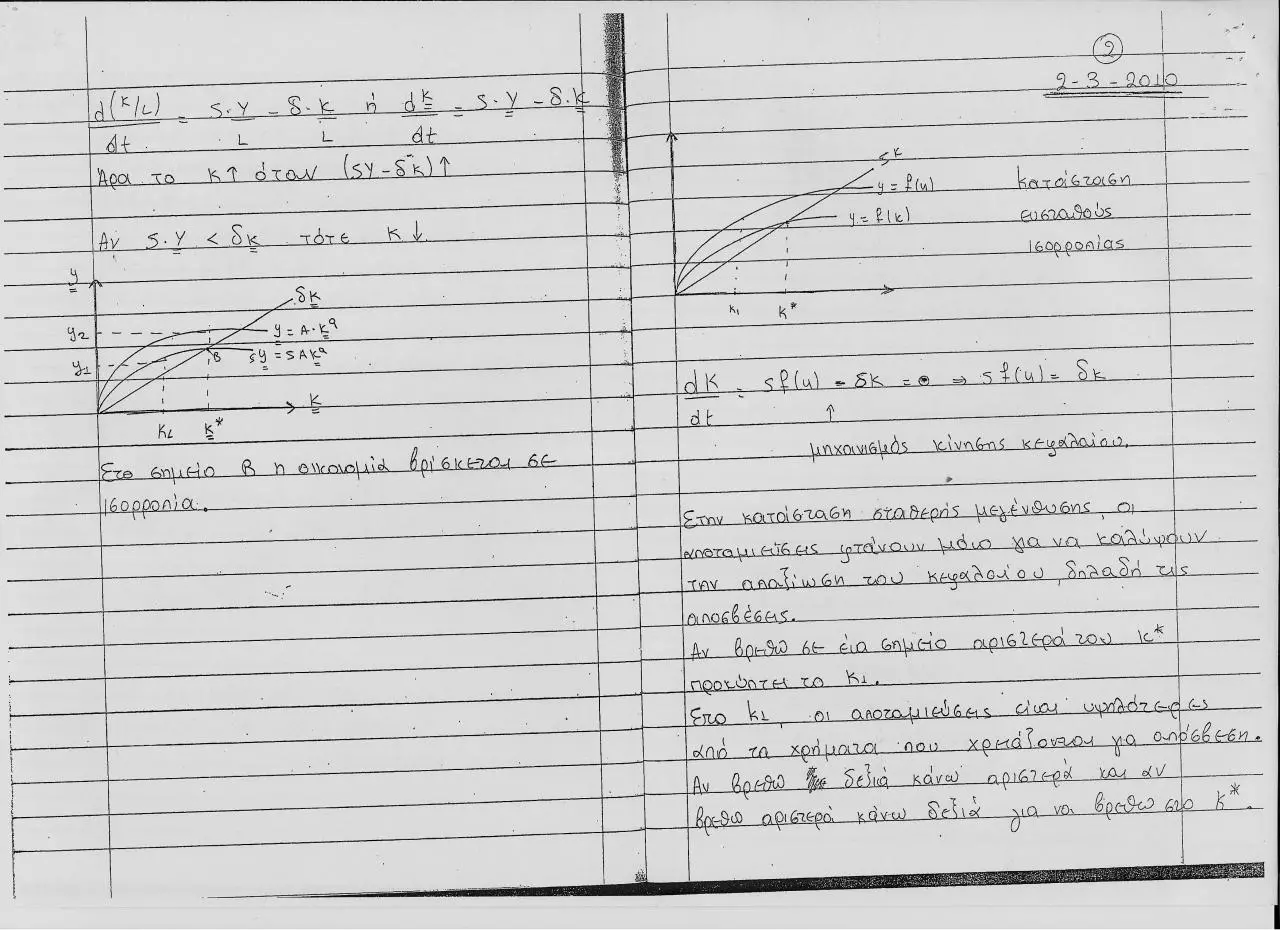 d(K/L)/dt = S·Y/L - δ·K/L ή dk/dt = S·Y - δ·k
Άρα το K↑ όταν (SY-δk)↑
Αν S·Y < δk τότε K↓
y
δk
y2
y = A·k^a
B
sy = SAk^a
y1
k
K1
k*
Στο σημείο B η οικονομία βρίσκεται σε
ισορροπία.
2
2-3-2010
SK
y = f(u)
κατάσταση
y = f(k)
ευσταθούς
ισορροπίας
K1
K*
dK/dt = Sf(u) - δK = 0 ⇒ Sf(u) = δK
↑
μηχανισμός κίνησης κεφαλαίου.
Στην κατάσταση σταθερής μεγένθυσης, οι
αποταμιεύσεις φτάνουν μόνο για να καλύψουν
την απαξίωση του κεφαλαίου, δηλαδή τις
αποσβέσεις.
Αν βρεθώ σε ένα σημείο αριστερά του K*
προκύπτει το K1.
Στο K1, οι αποταμιεύσεις είναι υψηλότερες
από τα χρήματα που χρειάζονται για απόσβεση.
Αν βρεθώ δεξιά κάνω αριστερά και αν
βρεθώ αριστερά κάνω δεξιά για να βρεθώ στο K*.